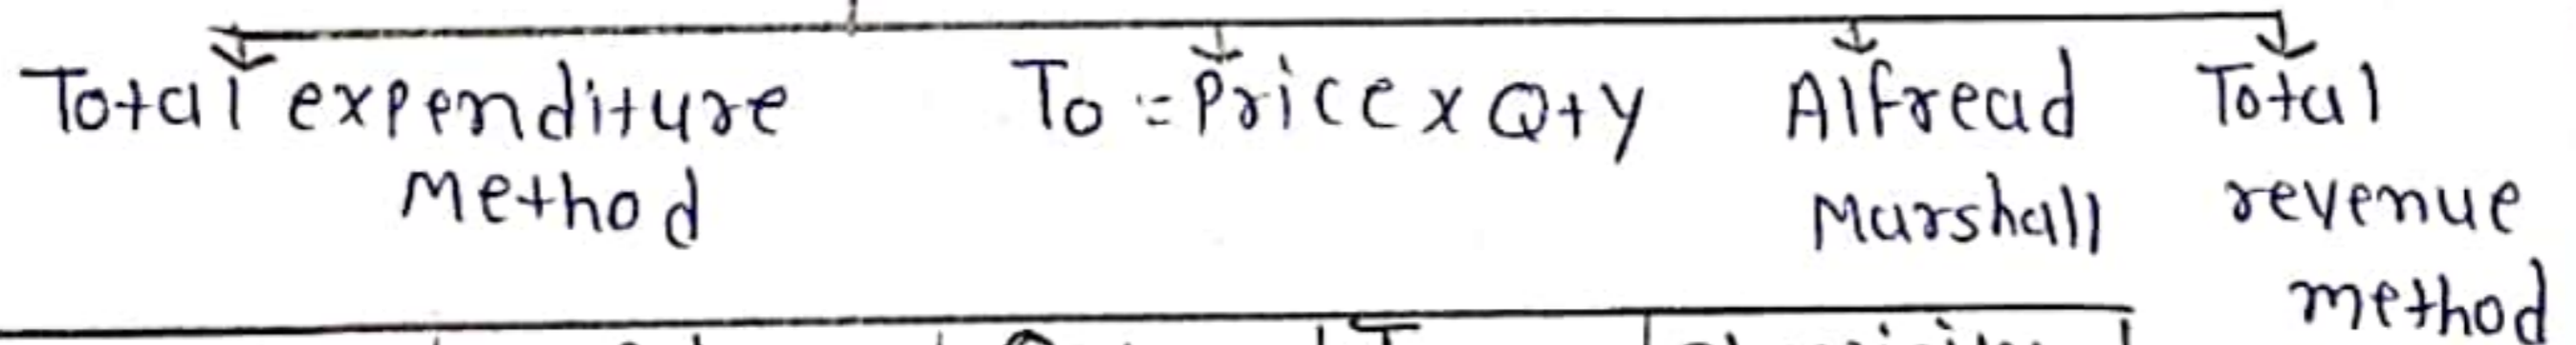 Total expenditure Method
To = Price x Qty
Alfread Marshall
Total revenue method